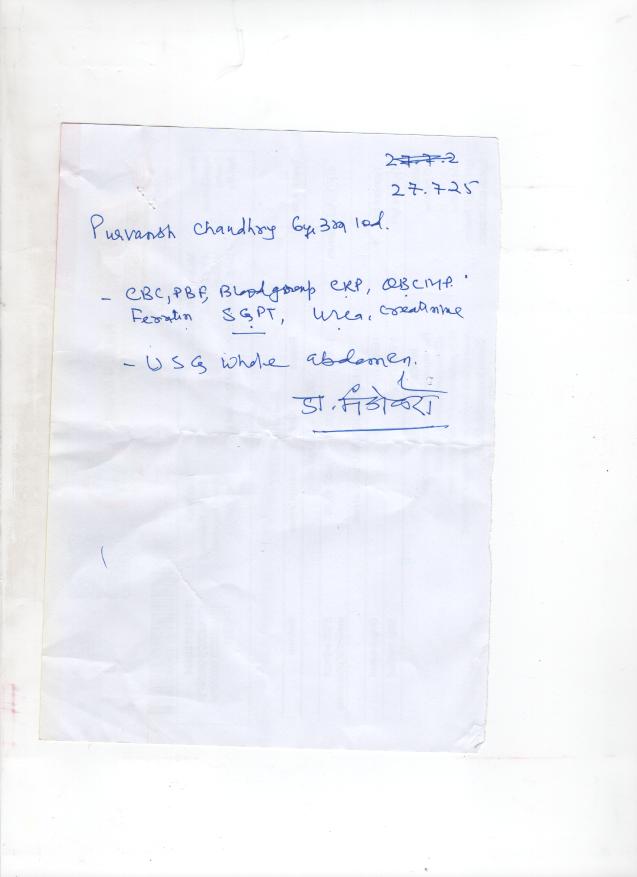 27.7.2
27.7.25
Purvansh Chandhry 6yr 3m 10d.
- CBC, PBF, Blood group CRP, QBCMP.
Ferratin SGPT, Urea, Creatinine
- USG whole abdomen.
डा.